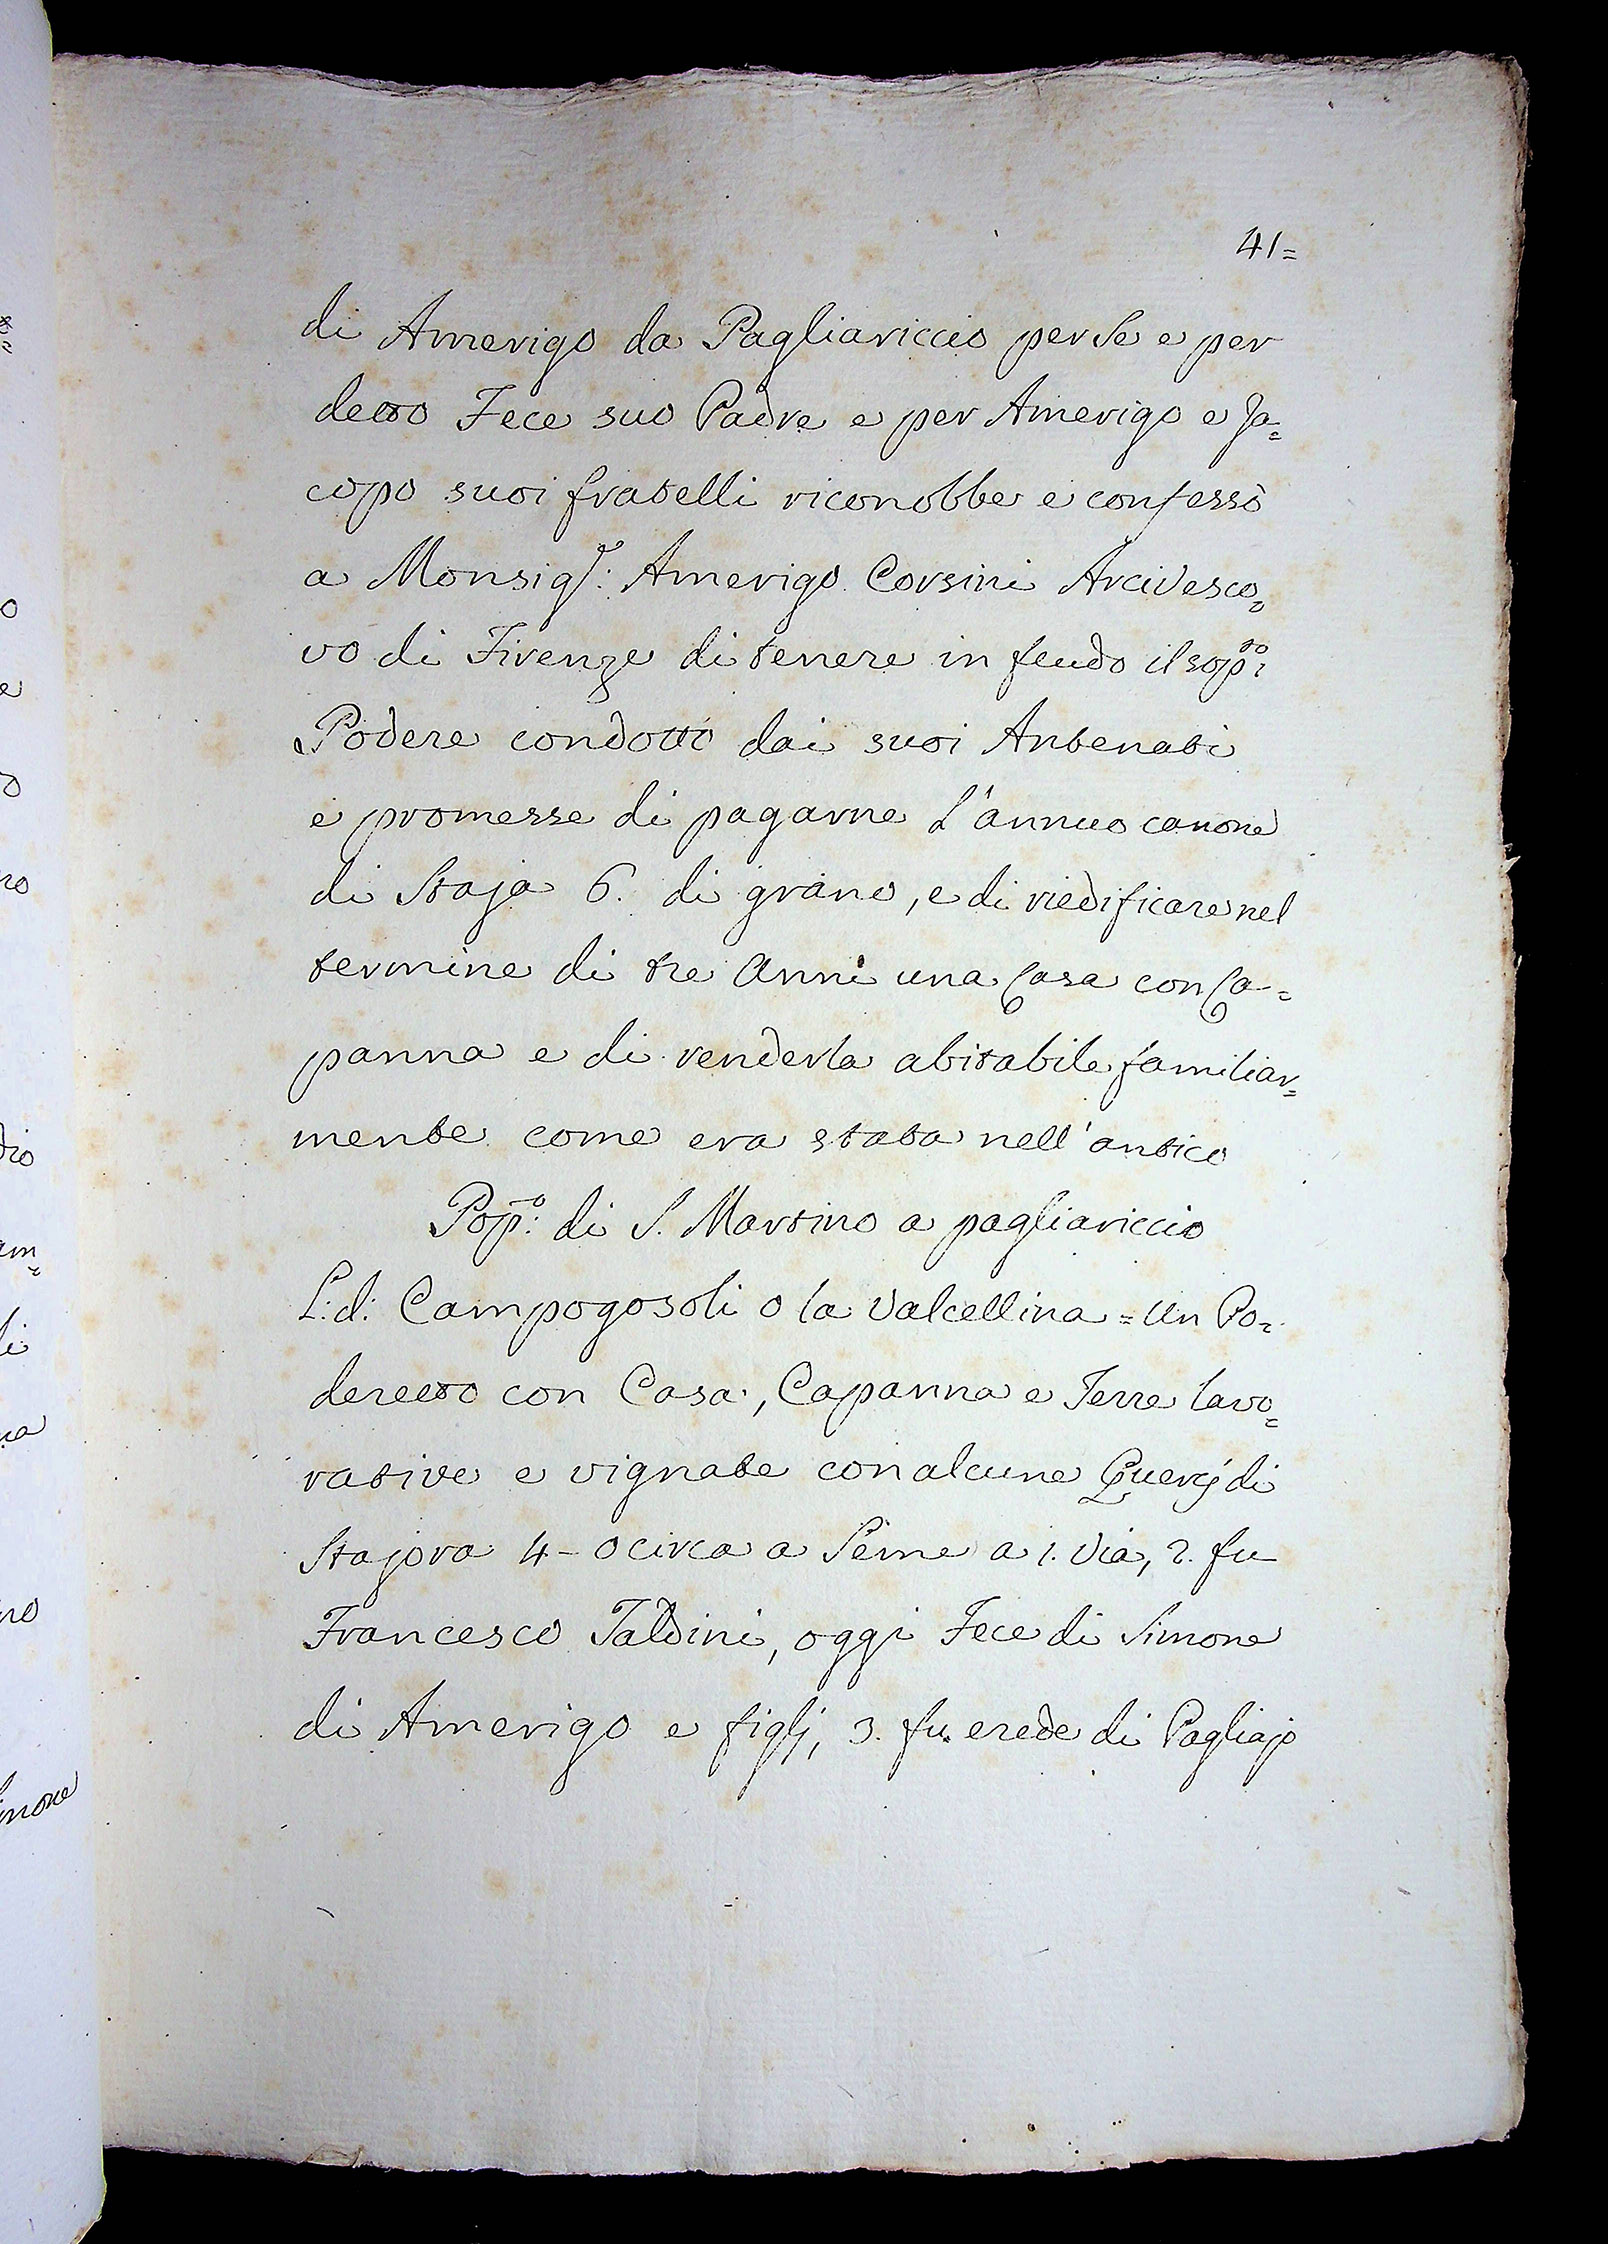 41=
di Amerigo da Pagliariccio per Se e per
detto Fece suo Padre e per Amerigo e Ja=
copo suoi fratelli riconobbe e confessò
a Monsigr: Amerigo Corsini Arcivesco=
vo di Firenze di tenere in feudo il sopto:
Podere condotti dai suoi Antenati
e promesse di pagarne l'annuo canone
di Staja 6. di grano, e di riedificare nel
termine di tre Anni una Casa con Ca=
panna e di renderla abitabile familiar=
mente come era stata nell'antico
Popo: di S. Martino a pagliariccio
L: d: Campogosoli o la Valcellina = Un Po=
deretto con Casa, Capanna e Terre lavo=
rative e vignate con alcune Quercj di
Stajora 4 - o circa a Seme a 1. Via, 2. fu
Francesco Taldini, oggi Fece di Simone
di Amerigo e figlj, 3. fu erede di Pagliajo